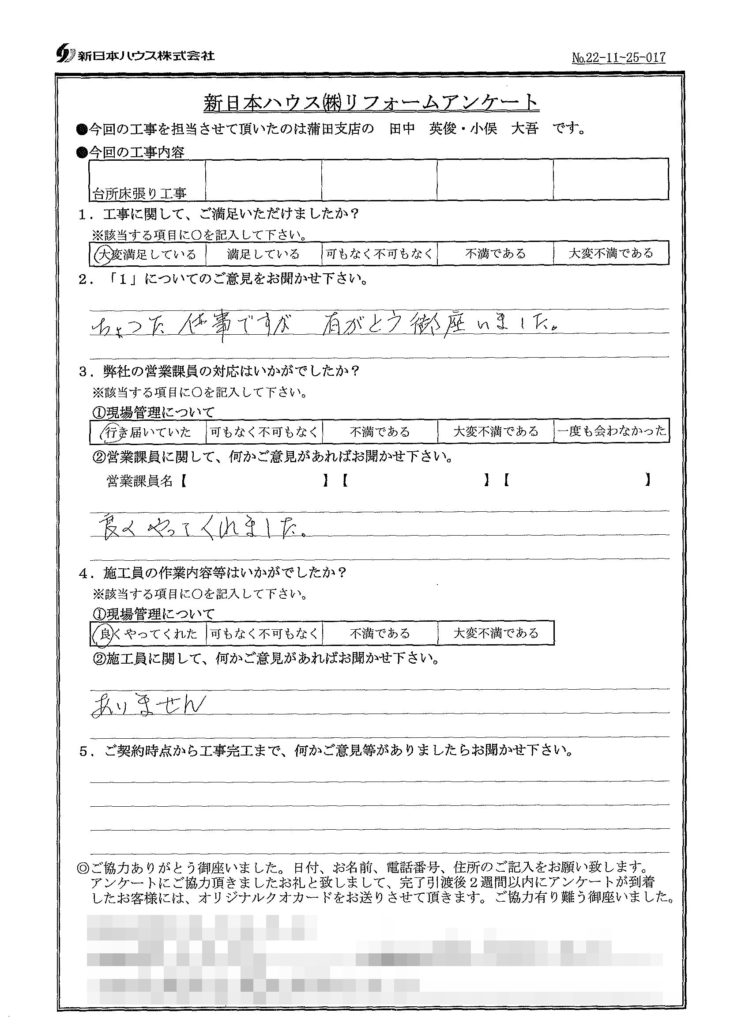 新日本ハウス株式会社
№22-11-25-017
新日本ハウス㈱リフォームアンケート
●今回の工事を担当させて頂いたのは蒲田支店の 田中 英俊・小俣 大吾 です。
●今回の工事内容
台所床張り工事
1．工事に関して、ご満足いただけましたか？
※該当する項目に○を記入して下さい。
大変満足している 満足している 可もなく不可もなく 不満である 大変不満である
2．「1」についてのご意見をお聞かせ下さい。
ちょつた仕事ですが 有がとう御座いました。
3．弊社の営業課員の対応はいかがでしたか？
※該当する項目に○を記入して下さい。
①現場管理について
行き届いていた 可もなく不可もなく 不満である 大変不満である 一度も会わなかった
②営業課員に関して、何かご意見があればお聞かせ下さい。
営業課員名【 】【 】【 】
良くやってくれました。
4．施工員の作業内容等はいかがでしたか？
※該当する項目に○を記入して下さい。
①現場管理について
良くやってくれた 可もなく不可もなく 不満である 大変不満である
②施工員に関して、何かご意見があればお聞かせ下さい。
ありません
5．ご契約時点から工事完工まで、何かご意見等がありましたらお聞かせ下さい。
◎ご協力ありがとう御座いました。日付、お名前、電話番号、住所のご記入をお願い致します。
アンケートにご協力頂きましたお礼と致しまして、完了引渡後２週間以内にアンケートが到着
したお客様には、オリジナルクオカードをお送りさせて頂きます。ご協力有り難う御座いました。